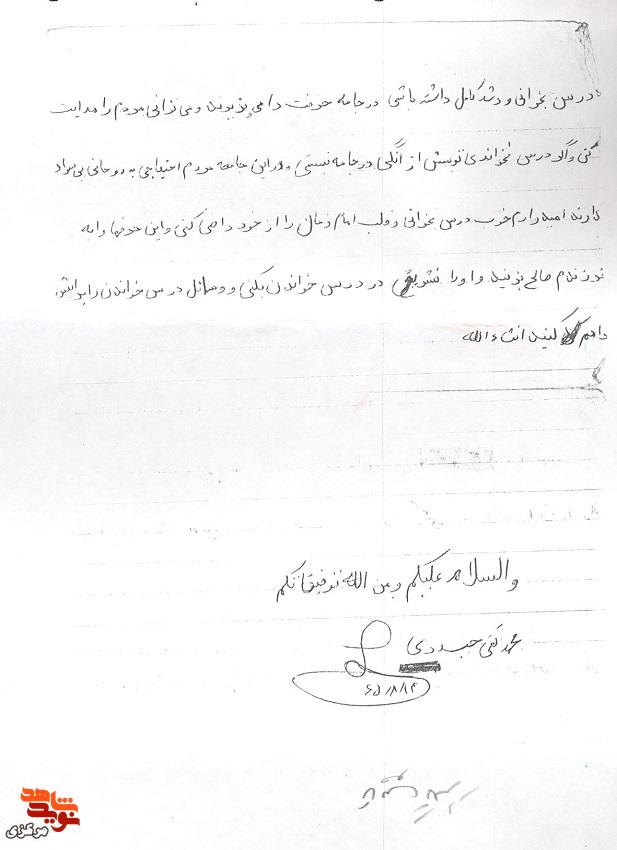 درس بخوانی و رشد کامل داشته باشی در جامعه حرفت را می پذیرند و می توانی مردم را هدایت
کنی و اگر درس نخواندی نویسش از انگلی در جامعه نیستی و در این جامعه مردم احتیاجی به روحانی بی سواد
ندارند امیدوارم خوب درس بخوانی و قلب امام زمان را از خود راضی کنی و این حرفها را به
نوزندام صالح بزنید و او را تشویق در درس خواندن بکنی و وسائل درس خواندن را برایش
داهم کنید انشاءالله
والسلام علیکم و من الله توفیقاتکم
محمد تقی حیدری
۶۵/۸/۱۴
نوید شاهد
مرکزی